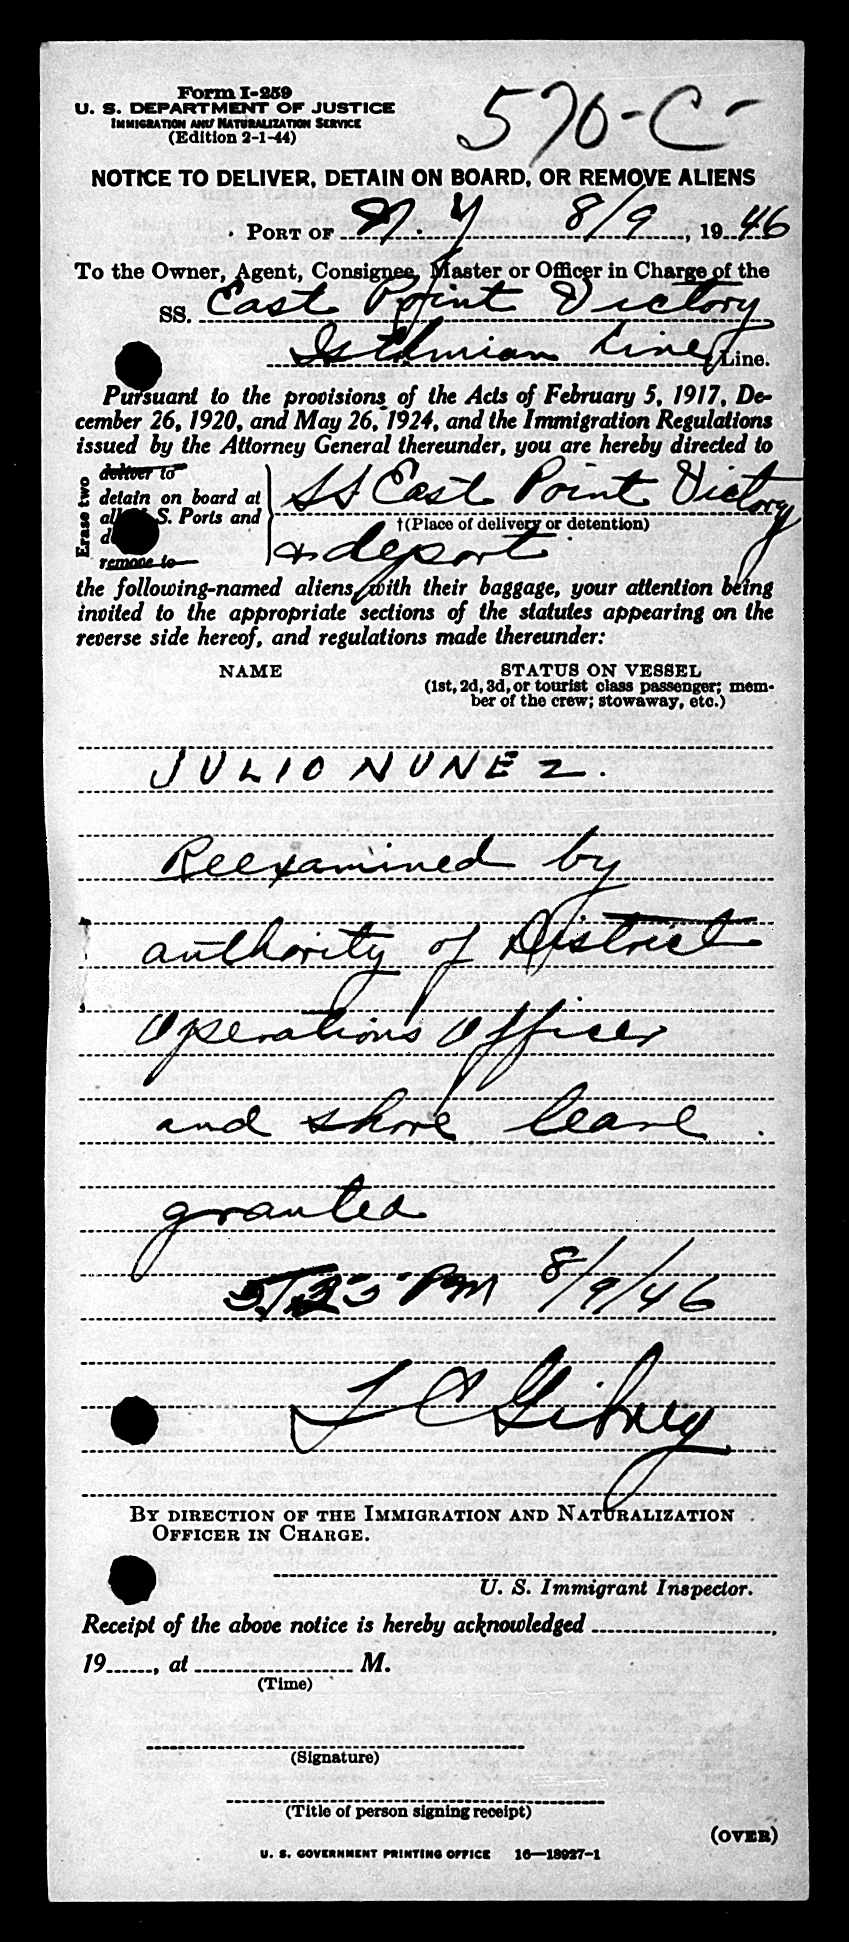 Form I-259
U. S. DEPARTMENT OF JUSTICE
IMMIGRATION AND NATURALIZATION SERVICE
(Edition 2-1-44)
570-C-
NOTICE TO DELIVER, DETAIN ON BOARD, OR REMOVE ALIENS
PORT OF N. Y 8/9, 1946
To the Owner, Agent, Consignee, Master or Officer in Charge of the
SS. East Point Victory
Isthmian Line Line.
Pursuant to the provisions of the Acts of February 5, 1917, De-
cember 26, 1920, and May 26, 1924, and the Immigration Regulations
issued by the Attorney General thereunder, you are hereby directed to
Erase two
deliver to
detain on board at
all S. Ports and
remove to
SS East Point Victory
†(Place of delivery or detention)
& deport
the following-named aliens, with their baggage, your attention being
invited to the appropriate sections of the statutes appearing on the
reverse side hereof, and regulations made thereunder:
NAME STATUS ON VESSEL
(1st, 2d, 3d, or tourist class passenger; mem-
ber of the crew; stowaway, etc.)
JULIO NUNEZ.
Reexamined by
authority of District
Operations Officer
and shore leave
granted
PM 8/9/46
Gibney
BY DIRECTION OF THE IMMIGRATION AND NATURALIZATION
OFFICER IN CHARGE.
U. S. Immigrant Inspector.
Receipt of the above notice is hereby acknowledged ,
19 , at M.
(Time)
(Signature)
(Title of person signing receipt)
(OVER)
U. S. GOVERNMENT PRINTING OFFICE 16—18927-1